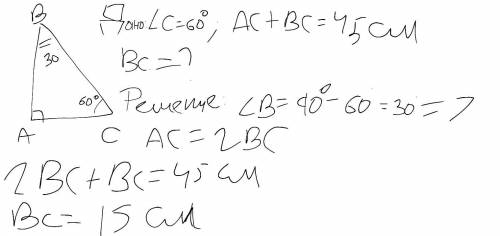 B
Дано: ∠C=60°; AC+BC=45 см
30
BC=?
60°
Решение: ∠B=90°-60=30=>
A C
AC=2BC
2BC+BC=45 см
BC=15 см